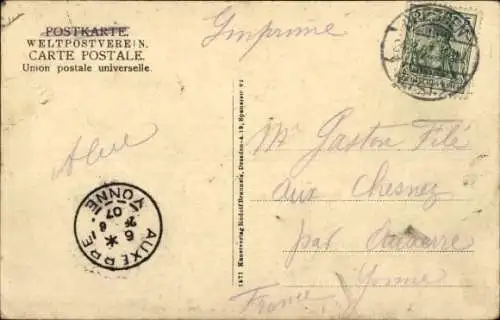 POSTKARTE.
WELTPOSTVEREIN.
CARTE POSTALE.
Union postale universelle.
Imprimé
DRESDEN
Mr Gaston Filé
aux Chesnez
par Auxerre
Yonne
France
AUXERRE
YONNE
07
1471 Kunstverlag Rudolf Brunnein, Dresden-A.19, Spenerstr